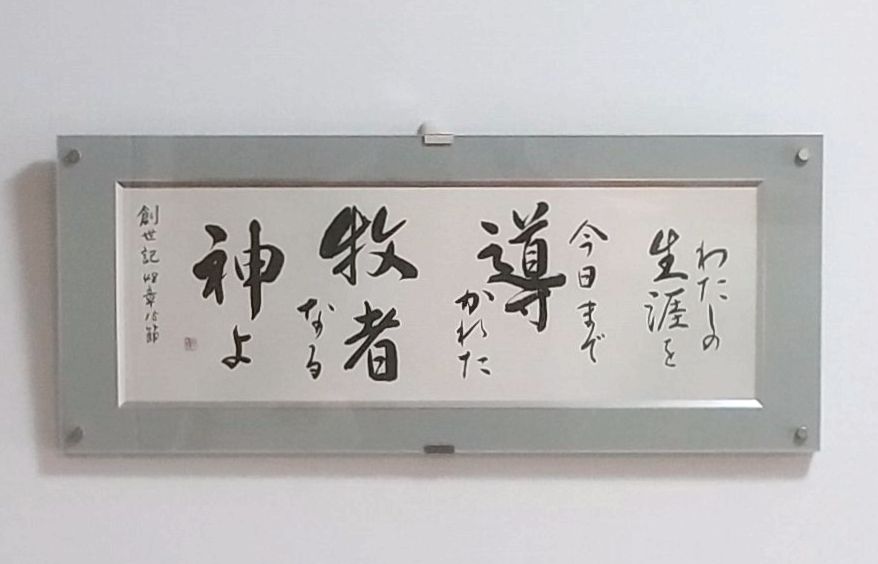 わたしの
生涯を
今日まで
導
かれた
牧者
なる
神よ
創世記48章15節